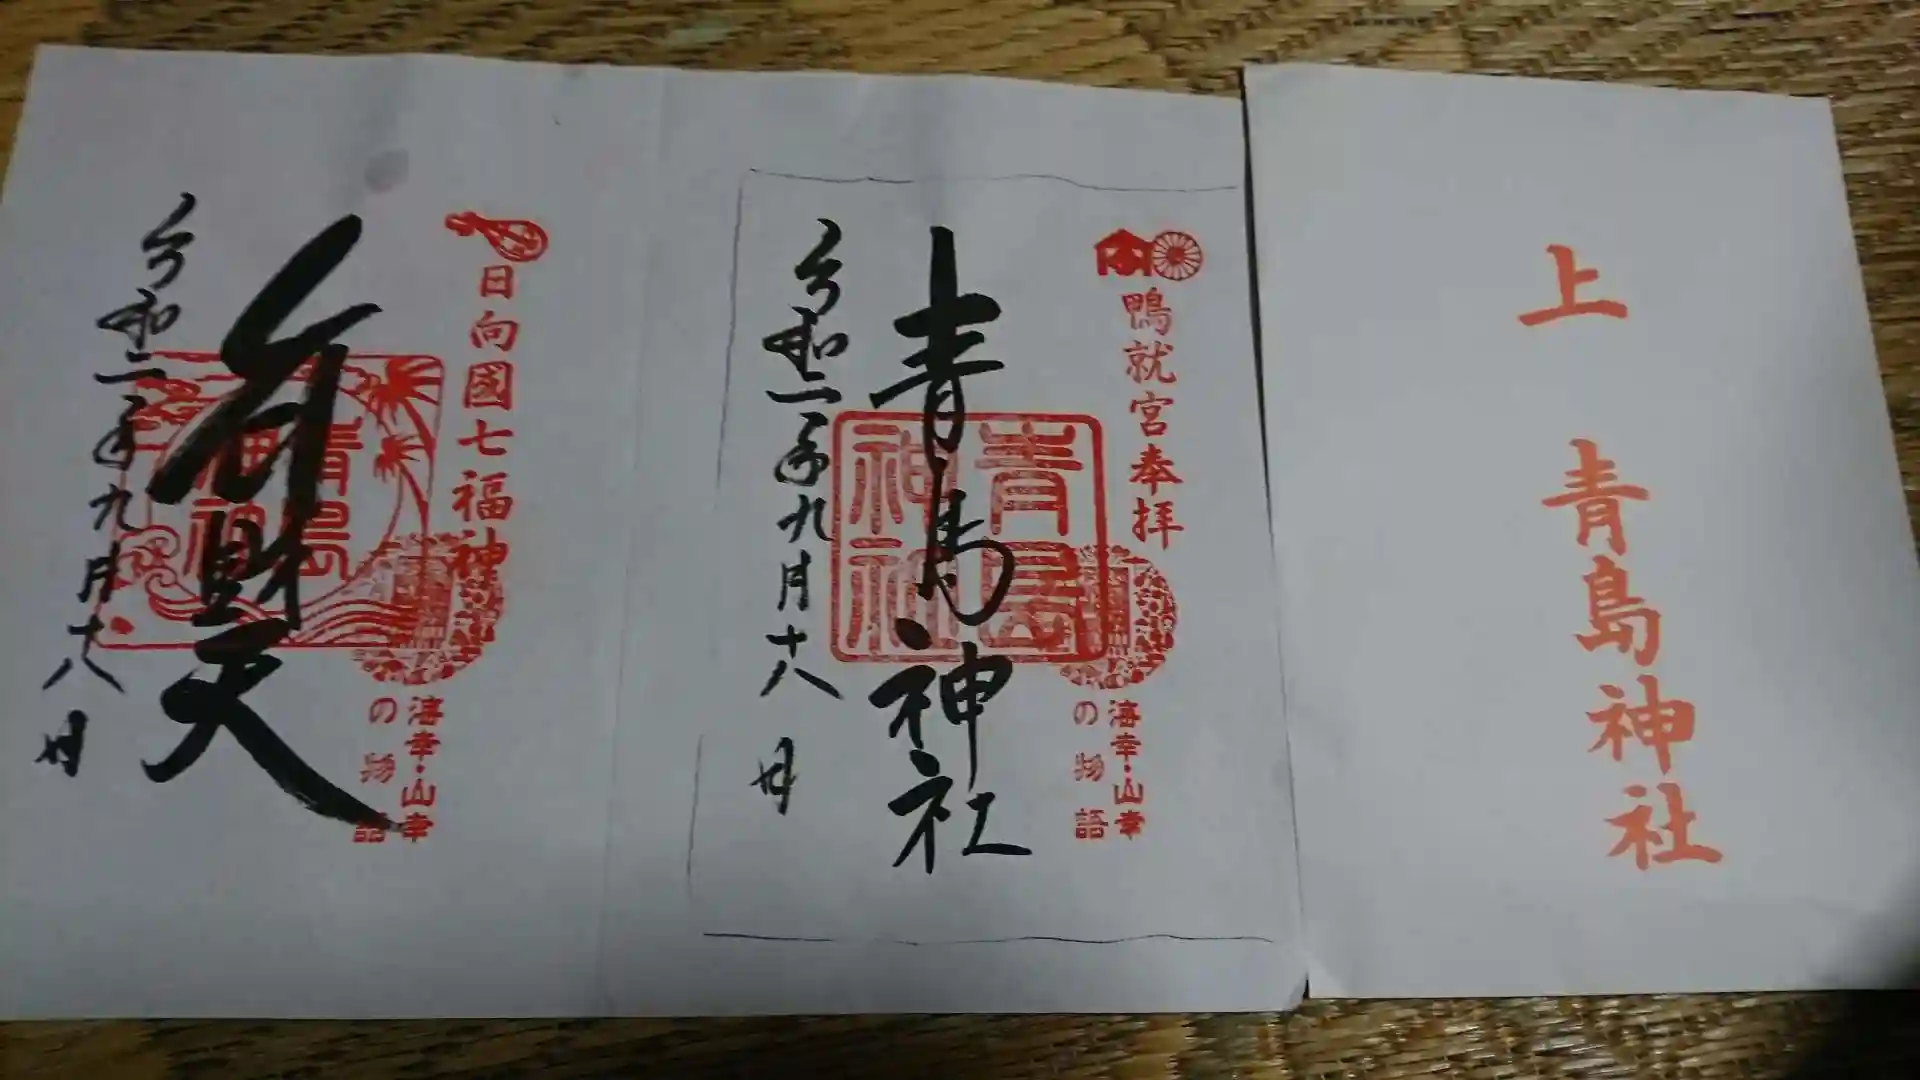 上 青島神社
鴨就宮奉拝
海幸・山幸
の物語
青島神社
青島
神社
令和二年九月十八日
日向國七福神
海幸・山幸
の物語
弁財天
青島
神社
令和二年九月十八日